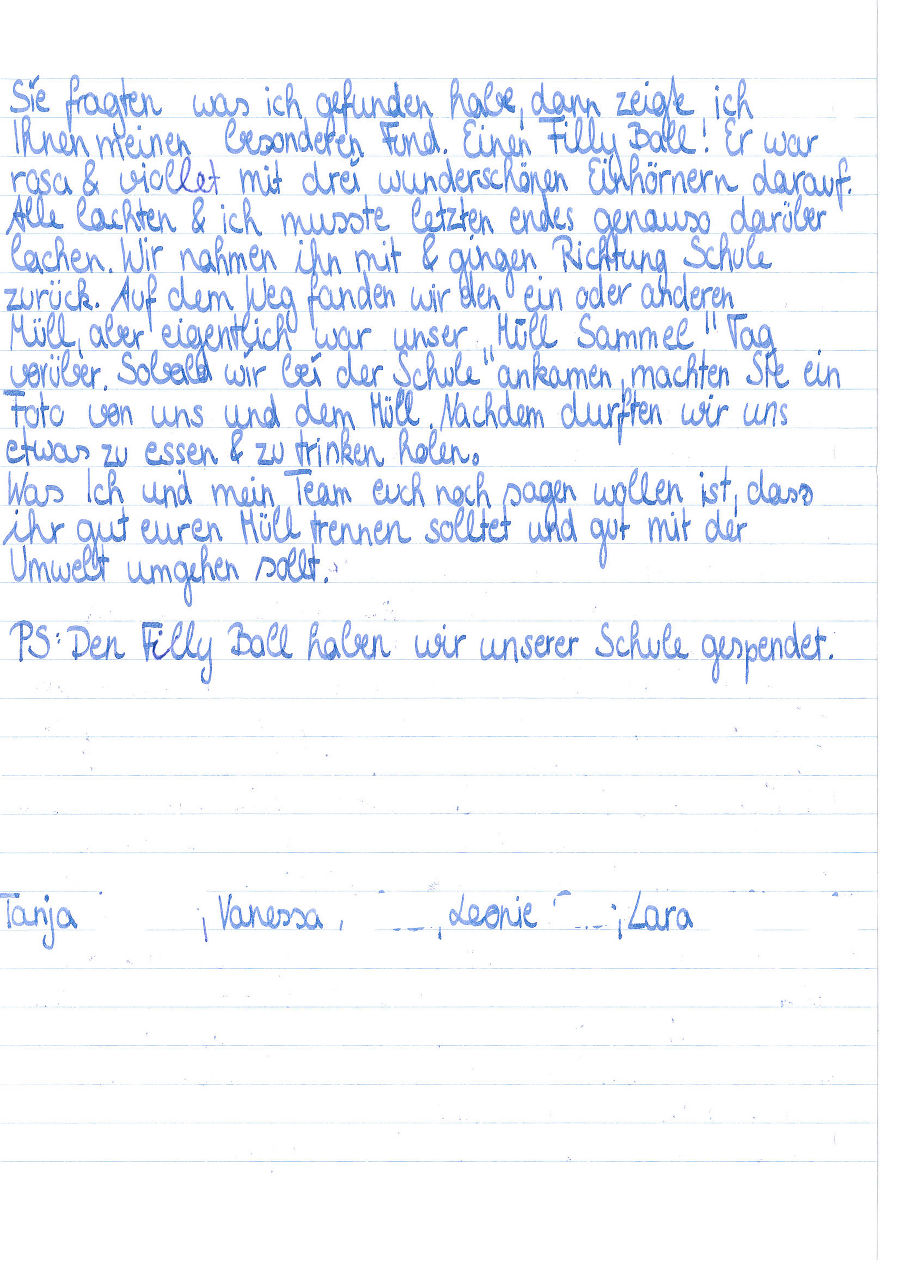 Sie fragten was ich gefunden habe, dann zeigte ich
Ihnen meinen besonderen Fund. Einen Filly Ball! Er war
rosa & viollet mit drei wunderschönen Einhörnern darauf.
Alle lachten & ich musste letzten endes genauso darüber
lachen. Wir nahmen ihn mit & gingen Richtung Schule
zurück. Auf dem Weg fanden wir den ein oder anderen
Müll, aber eigentlich war unser "Müll Sammel" Tag
vorüber. Sobald wir bei der Schule ankamen, machten Sie ein
Foto von uns und dem Müll. Nachdem durften wir uns
etwas zu essen & zu trinken holen.
Was Ich und mein Team euch noch sagen wollen ist, dass
ihr gut euren Müll trennen solltet und gut mit der
Umwelt umgehen sollt.
PS: Den Filly Ball haben wir unserer Schule gespendet.
Tanja , Vanessa , Leonie , Lara